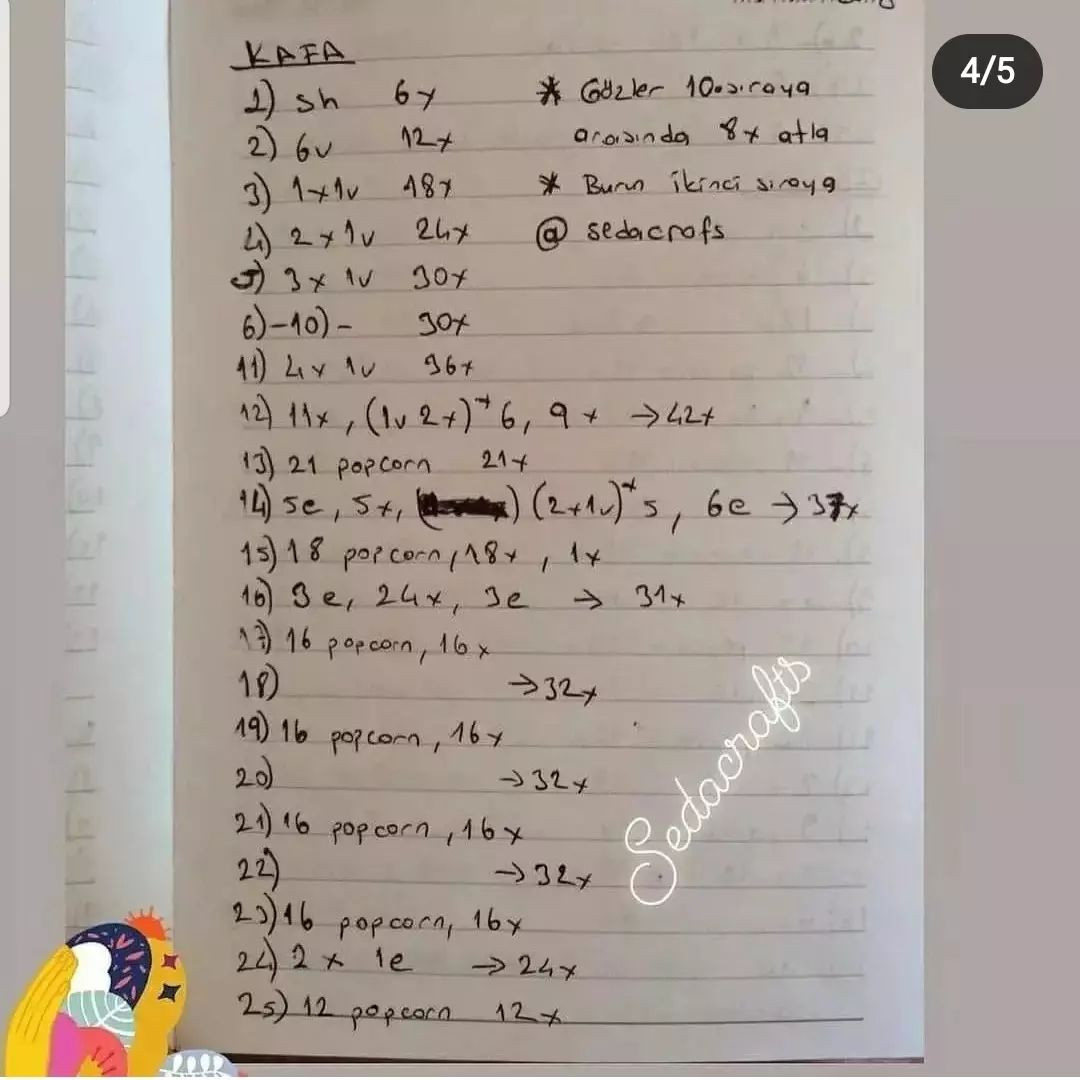 4/5
KAFA
1) sh 6x
* Gözler 10.sıraya
2) 6v 12x
arasında 8x atla
3) 1x1v 18x
* Burun ikinci sıraya
4) 2x1v 24x
@ sedacrafs
5) 3x 1v 30x
6)-10)- 30x
11) 4x 1v 36x
12) 11x, (1v 2x)*6, 9x → 42x
13) 21 popcorn 21x
14) 5e, 5x, ( ) (2x1v)*5, 6e → 37x
15) 18 popcorn, 18x, 1x
16) 3e, 24x, 3e → 31x
17) 16 popcorn, 16x
18) → 32x
19) 16 popcorn, 16x
20) → 32x
21) 16 popcorn, 16x
22) → 32x
23) 16 popcorn, 16x
24) 2x 1e → 24x
25) 12 popcorn 12x
Sedacrafts